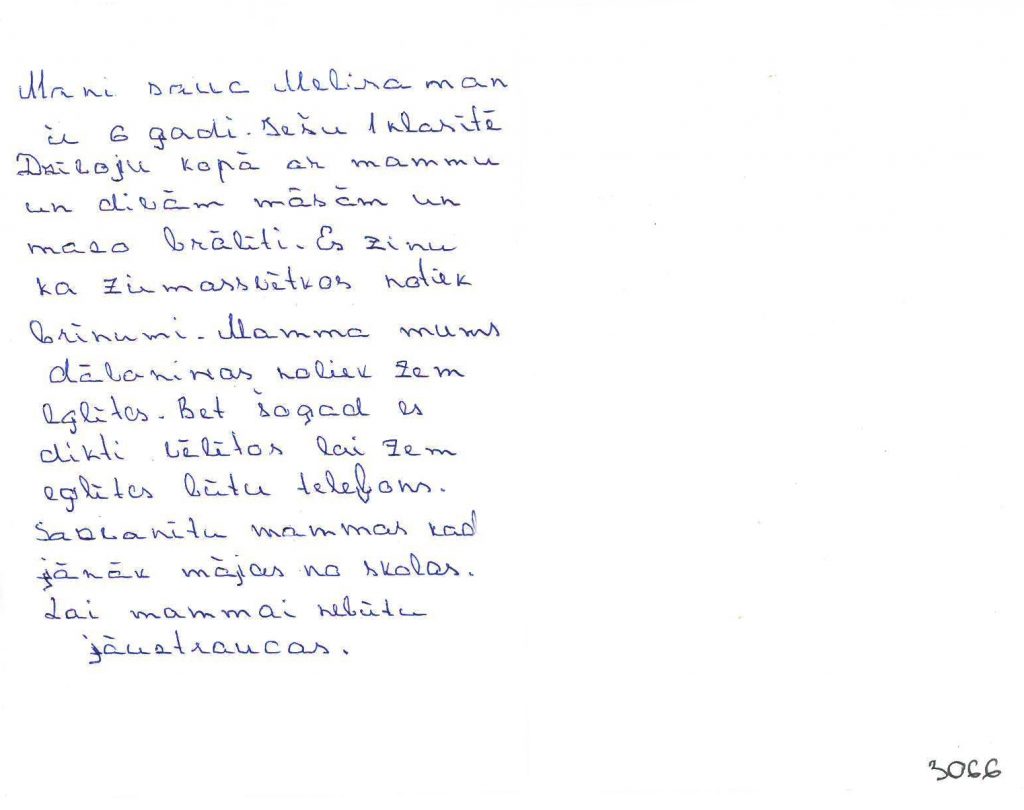 Mani sauc Melisa man
ir 6 gadi. Iešu 1 klasītē
Dzīvoju kopā ar mammu
un divām māsām un
mazo brālīti. Es zinu
ka Ziemassvētkos notiek
brīnumi. Mamma mums
dāvaniņas noliek zem
eglītes. Bet šogad es
dikti vēlētos lai zem
eglītes būtu telefons.
Sazvanītu mammas kad
jānāk mājas no skolas.
Lai mammai nebūtu
jāuztraucas.
3066